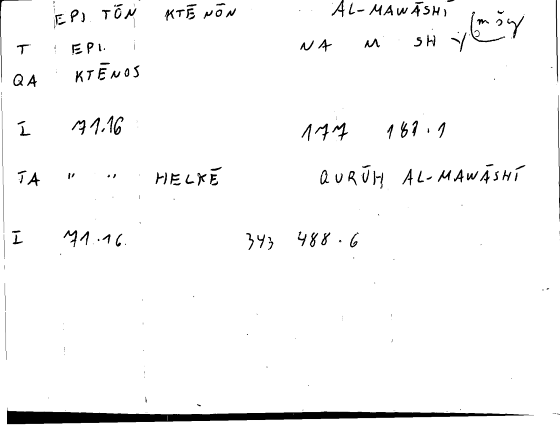 EPI TŌN KTĒNŌN AL-MAWĀSHĪ
T EPI. NA M SH Y
QA KTĒNOS
I 71.16 177 187.1
TA " " HELKĒ QURŪḤ AL-MAWĀSHĪ
I 71.16 343 488.6